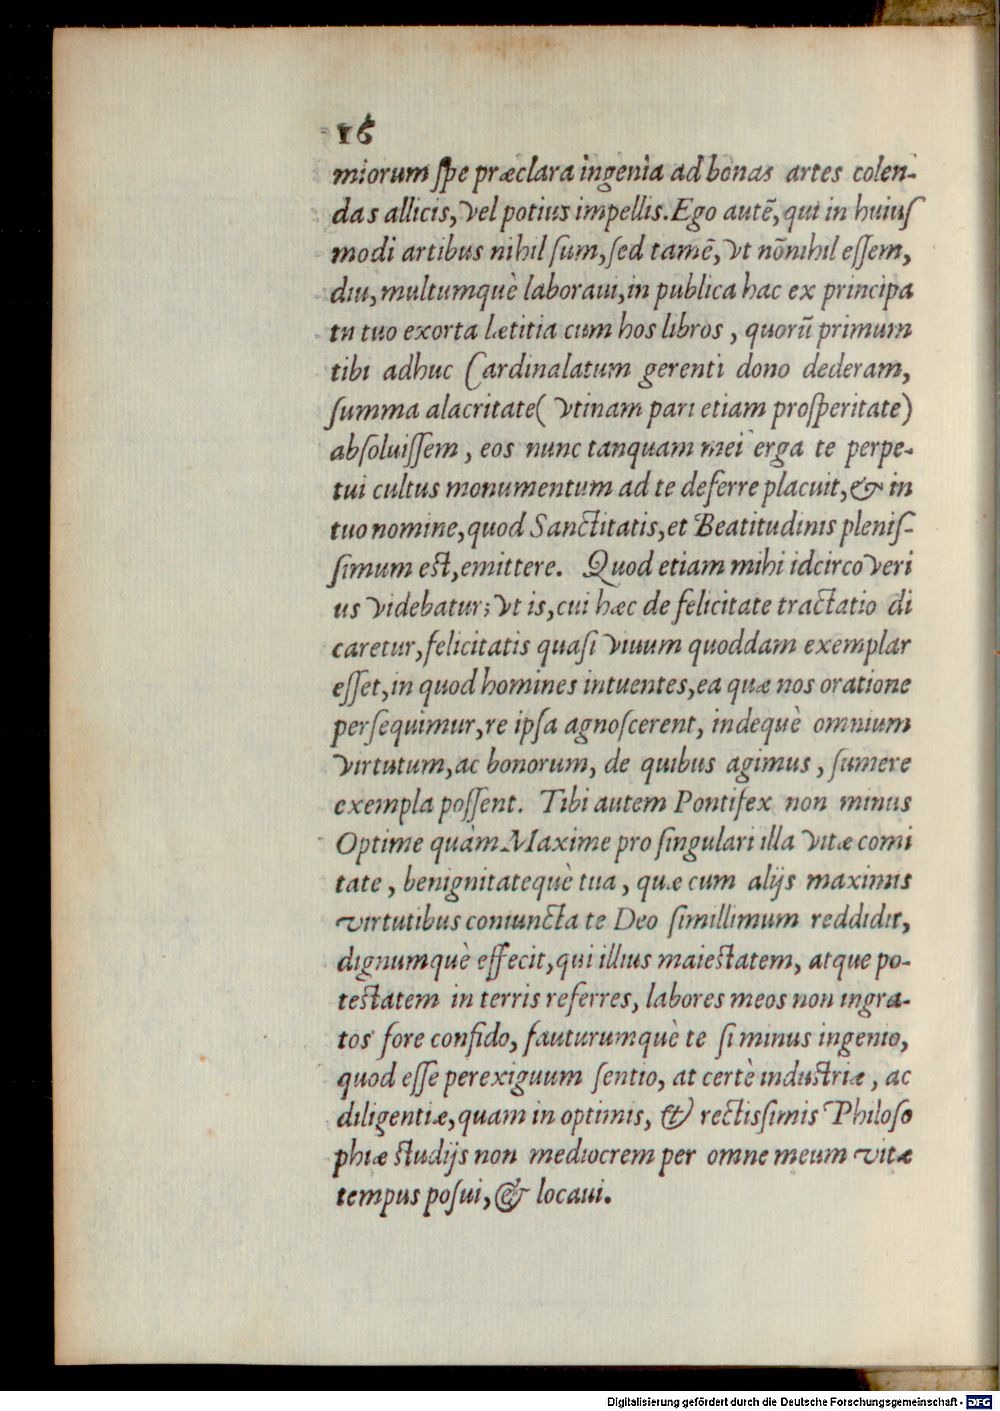 16
miorum ſpe præclara ingenia ad bonas artes colen-
das allicis, vel potius impellis. Ego autē, qui in huiuſ
modi artibus nihil ſum, ſed tamē, vt nōnihil eſſem,
diu, multumquè laboraui, in publica hac ex principa
tu tuo exorta lætitia cum hos libros, quorū primum
tibi adhuc Cardinalatum gerenti dono dederam,
ſumma alacritate( vtinam pari etiam proſperitate)
abſoluiſſem, eos nunc tanquam mei erga te perpe-
tui cultus monumentum ad te deferre placuit, & in
tuo nomine, quod Sanctitatis, et Beatitudinis pleniſ-
ſimum est, emittere. Quod etiam mihi idcirco veri
us videbatur; vt is, cui hæc de felicitate tractatio di
caretur, felicitatis quaſi viuum quoddam exemplar
eſſet, in quod homines intuentes, ea quæ nos oratione
perſequimur, re ipſa agnoſcerent, indequè omnium
virtutum, ac bonorum, de quibus agimus, ſumere
exempla poſſent. Tibi autem Pontifex non minus
Optime quàm Maxime pro ſingulari illa vitæ comi
tate, benignitatequè tua, quæ cum alijs maximis
virtutibus coniuncta te Deo ſimillimum reddidit,
dignumquè effecit, qui illius maiestatem, atque po-
testatem in terris referres, labores meos non ingra-
tos fore confido, fauturumquè te ſi minus ingenio,
quod eſſe perexiguum ſentio, at certè industriæ, ac
diligentiæ, quam in optimis, & rectisſimis Philoſo
phiæ studijs non mediocrem per omne meum vitæ
tempus poſui, & locaui.
Digitalisierung gefördert durch die Deutsche Forschungsgemeinschaft - DFG